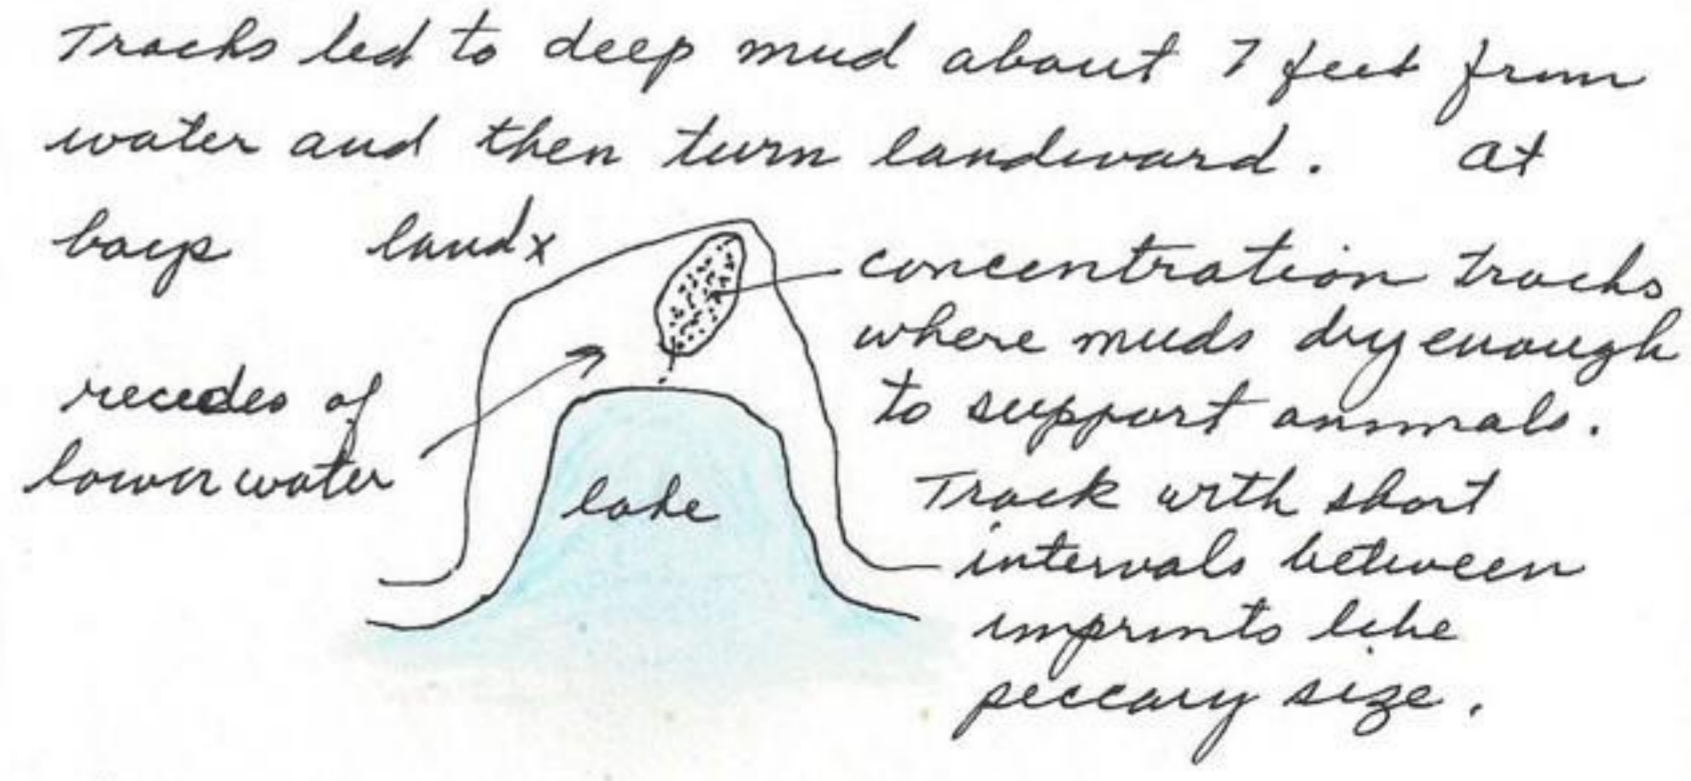 Tracks led to deep mud about 7 feet from
water and then turn landward. at
bays
land x
concentration tracks
where muds dry enough
to support animals.
recedes of
lower water
lake
Track with short
intervals between
imprints like
peccary size.